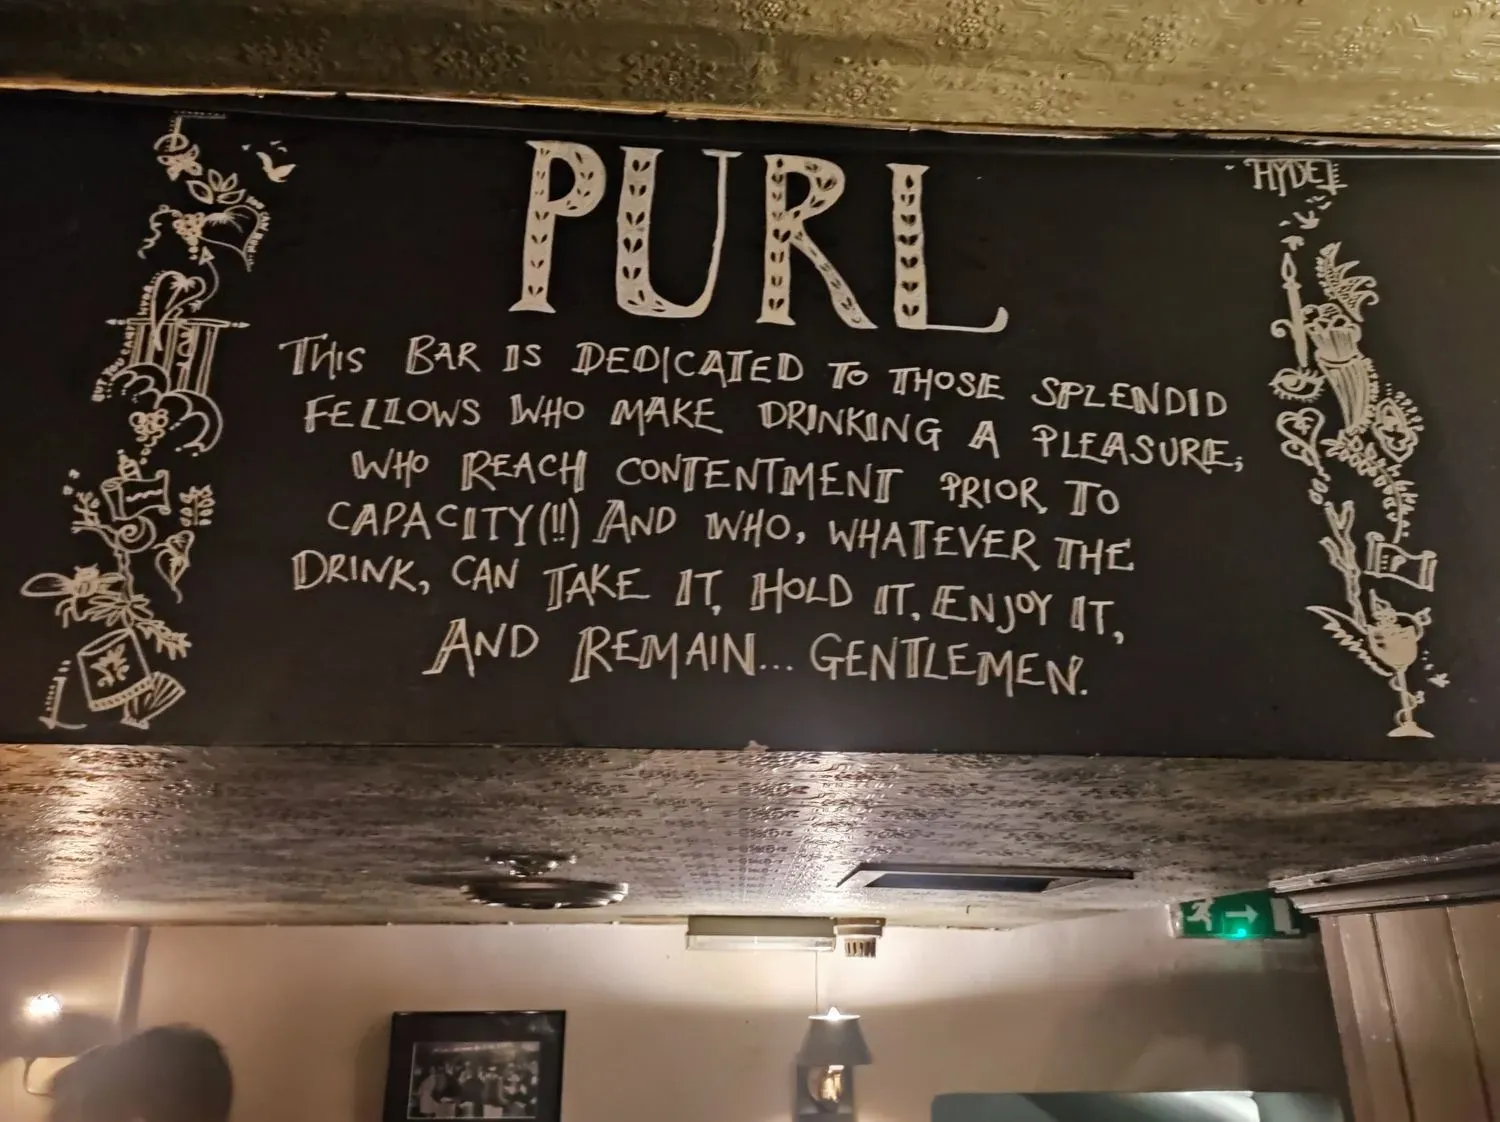 PURL
HYDE
THIS BAR IS DEDICATED TO THOSE SPLENDID
FELLOWS WHO MAKE DRINKING A PLEASURE;
WHO REACH CONTENTMENT PRIOR TO
CAPACITY(!!) AND WHO, WHATEVER THE
DRINK, CAN TAKE IT, HOLD IT, ENJOY IT,
AND REMAIN... GENTLEMEN.
BUT YOU CAN'T